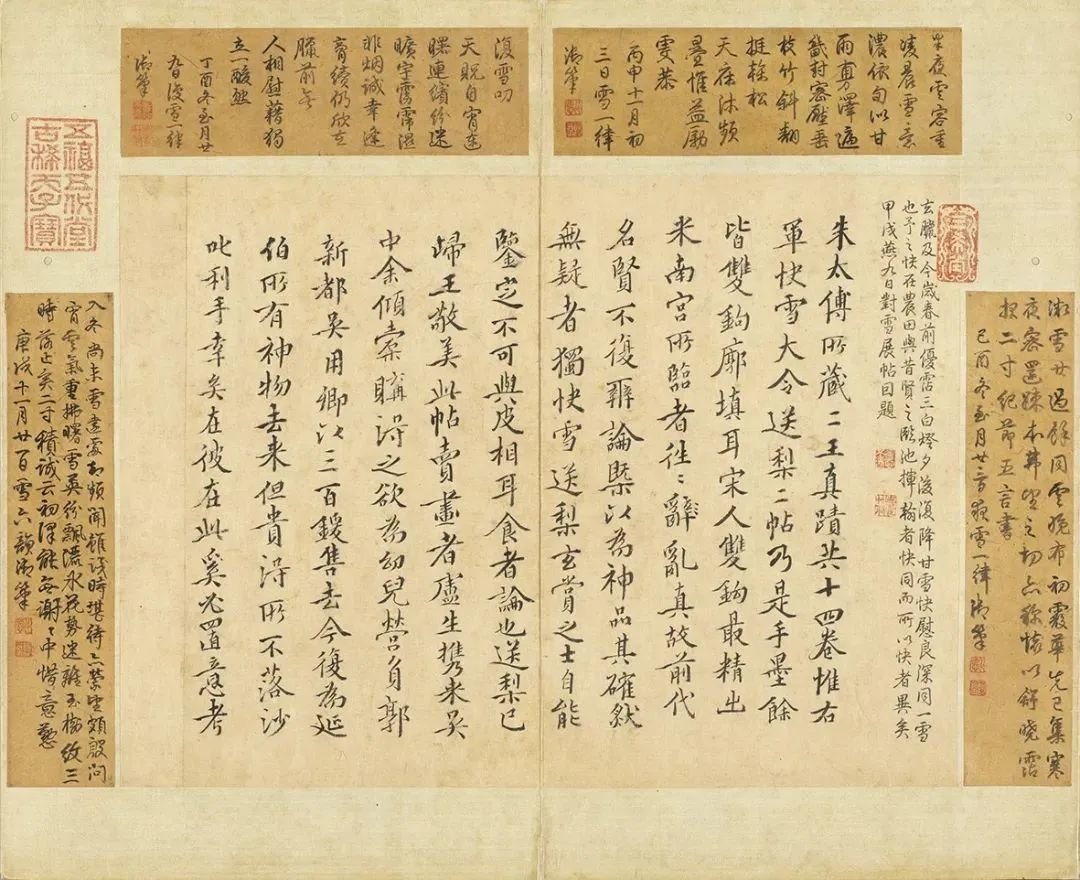 半夜雲容重
凌晨雪意
濃依旬似甘
雨澤遍
畿封密壓垂
枝竹斜翻
挺榦松
天庥沐頻
疊惟益勵
虔恭
丙申十一月初
三日雪一律
御筆
復雪叨
天貺自宵達
曙連繽紛迷
曠宇霑霈濕
非烟誠幸逢
膏續仍欣在
臘前與
人相慰藉獨
立一酸然
丁酉冬至月廿
九日復雪一律
御筆
過餘同雲晚布初霰華先已集寒
夜密還疎本冀望之切以舒曉霑
報二寸紀節五言書
己酉冬至月廿夜雪一律御筆
玄臘及今歲春前優霑三白燈夕後復降甘雪快慰良深同一雪
也予之快在農田與昔賢之臨池揮翰者快同而所以快者異矣
甲戌燕九日對雪展帖因題
朱太傅所藏二王真蹟共十四卷惟右
軍快雪大令送梨二帖乃是手墨餘
皆雙鉤廓填耳宋人雙鉤最精出
米南宮所臨者往〻辭亂真故前代
名賢不復辨論槩以為神品其確然
無疑者獨快雪送梨玄賞之士自能
鑒定不可與皮相耳食者論也送梨已
歸王敬美此帖賣畫者盧生攜來吳
中余傾橐購得之欲為幼兒營負郭
新都吳用卿以三百鍰售去今復為延
伯所有神物去來但貴得所不落沙
叱利手幸矣在彼在此奚必置意考
入冬尚未雪遠處却頻聞雖識時堪待亦縈望頗殷同
宵雲氣重拂曙雪英紛飄灑冰花勢迷離玉樹紋三
時落止矣二寸積誠云初澤能無謝〻中惜意懃
庚戌十一月廿一日雪六韻御筆
五福五代堂
古稀天子寶